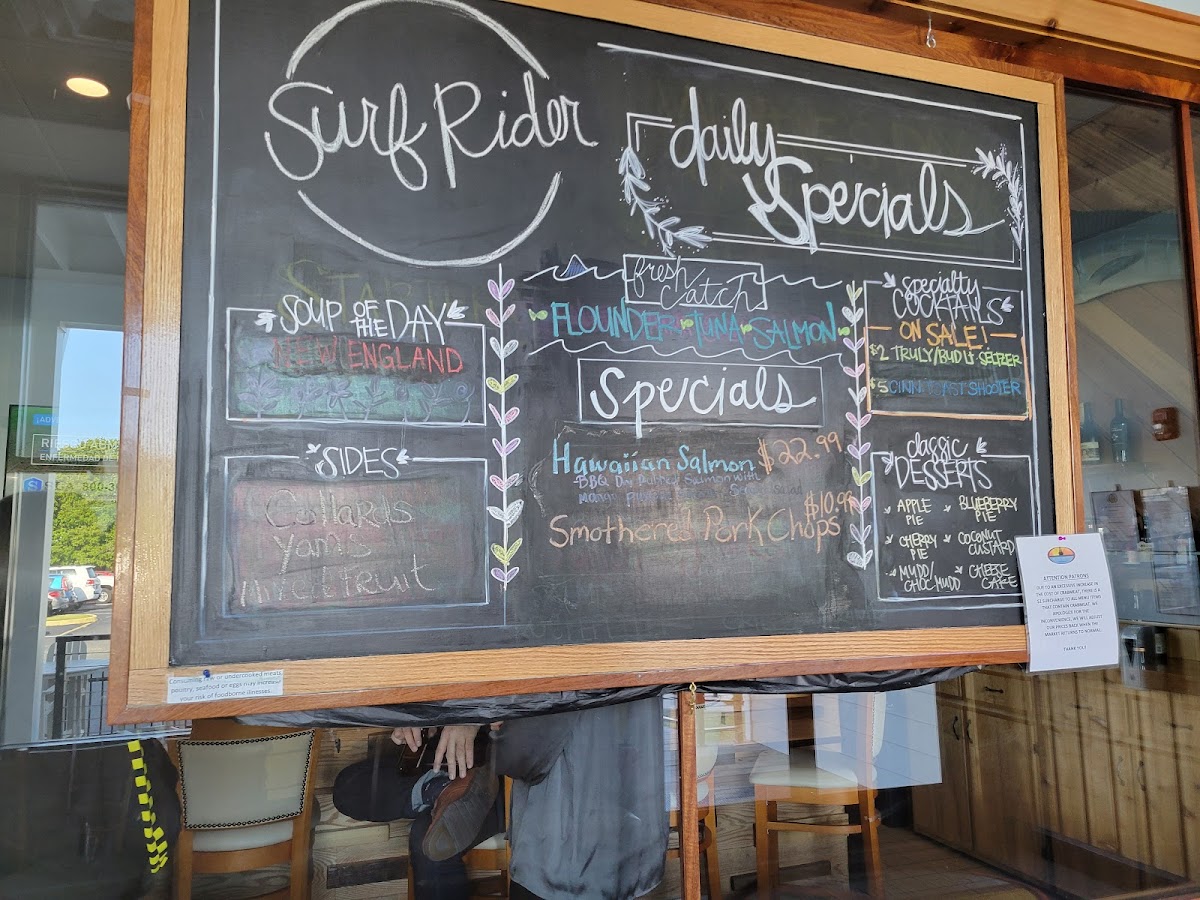 Surf Rider
daily
Specials
SOUP OF THE DAY
NEW ENGLAND
SIDES
Collards
Yams
fresh
Catch
FLOUNDER TUNA SALMON
Specials
Hawaiian Salmon $22.99
Salmon with
$10.99
Smothered Pork Chops
specialty
COCKTAILS
ON SALE!
$2 TRULY/BUD LT SELTZER
$5 CINN SHOOTER
classic
DESSERTS
APPLE PIE
BLUEBERRY PIE
CHERRY PIE
COCONUT CUSTARD
MUDD/
CHOC MUDD
CHEESE CAKE
ATTENTION PATRONS
DUE TO AN EXCESSIVE INCREASE IN
THE COST OF CRABMEAT, THERE IS A
$2 SURCHARGE TO ALL MENU ITEMS
THAT CONTAIN CRABMEAT. WE
APOLOGIZE FOR THE
INCONVENIENCE. WE WILL ADJUST
OUR PRICES BACK WHEN THE
MARKET RETURNS TO NORMAL.
THANK YOU!
Consuming raw or undercooked meats,
poultry, seafood or eggs may increase
your risk of foodborne illnesses.